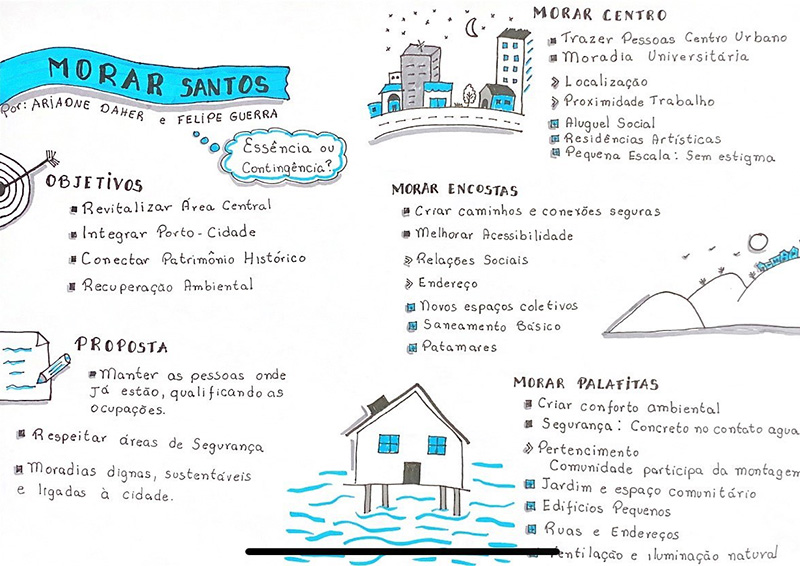 MORAR SANTOS
Por: ARIADNE DAHER e FELIPE GUERRA
Essência ou
Contingência?
OBJETIVOS
Revitalizar Área Central
Integrar Porto-Cidade
Conectar Patrimônio Histórico
Recuperação Ambiental
PROPOSTA
Manter as pessoas onde
já estão, qualificando as
ocupações.
Respeitar áreas de Segurança
Moradias dignas, sustentáveis
e ligadas à cidade.
MORAR CENTRO
Trazer Pessoas Centro Urbano
Moradia Universitária
Localização
Proximidade Trabalho
Aluguel Social
Residências Artísticas
Pequena Escala: Sem estigma
MORAR ENCOSTAS
Criar caminhos e conexões seguras
Melhorar Acessibilidade
Relações Sociais
Endereço
Novos espaços coletivos
Saneamento Básico
Patamares
MORAR PALAFITAS
Criar conforto ambiental
Segurança: Concreto no contato agua
Pertencimento
Comunidade participa da montagem
Jardim e espaço comunitário
Edifícios Pequenos
Ruas e Endereços
Ventilação e iluminação natural